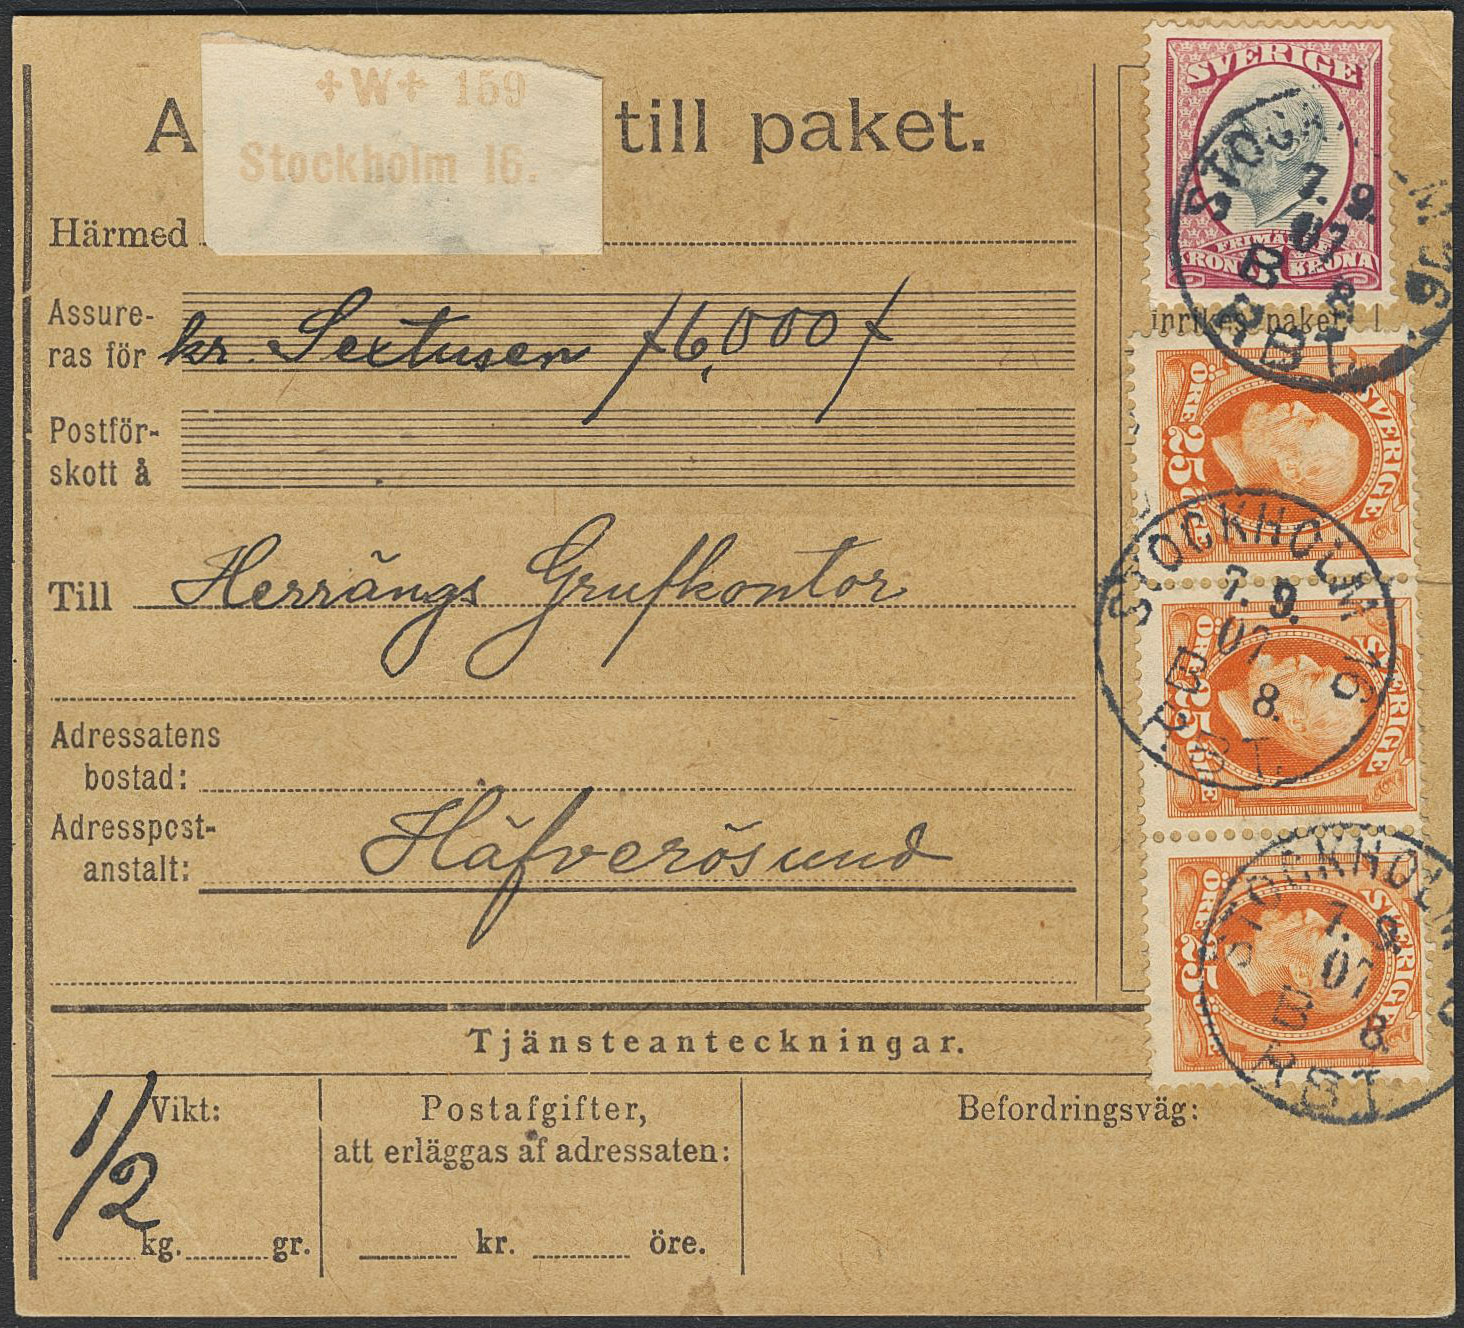 +W+ 159
Stockholm 16.
A till paket.
Härmed
Assure-
ras för kr. Sextusen /6,000/
Postför-
skott å
Till Herrängs Grufkontor
Adressatens
bostad:
Adresspost-
anstalt: Häfverösund
Tjänsteanteckningar.
Vikt:
1/2 kg. gr.
Postafgifter,
att erläggas af adressaten:
kr. öre.
Befordringsväg:
SVERIGE
FRIMÄRKE
KRONA KRONA
STOCKHOLM 16
7. 9.
07
8.
inrikes paket
SVERIGE
25
ÖRE ÖRE
STOCKHOLM 16
7. 9.
07
8.
SVERIGE
25
ÖRE ÖRE
STOCKHOLM 16
7. 9.
07
8.
SVERIGE
25
ÖRE